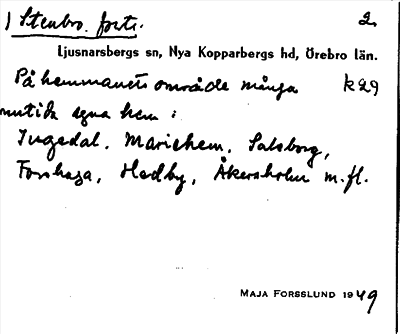 ) Stenbro. forts. 2.
Ljusnarsbergs sn, Nya Kopparbergs hd, Örebro län.
På hemmanets område många k29
nutida egna hem:
Ingedal, Mariehem, Salsborg,
Forshaga, Hedby, Åkersholm m.fl.
MAJA FORSSLUND 1949